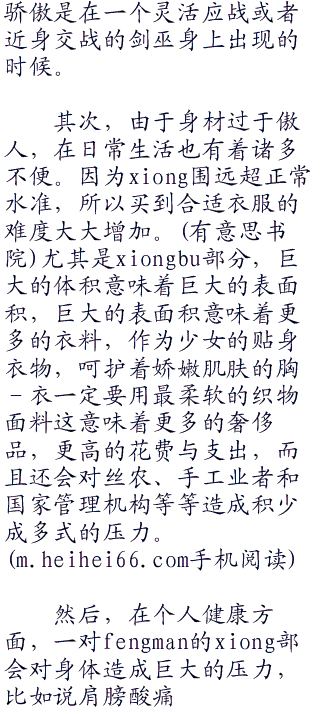 骄傲是在一个灵活应战或者
近身交战的剑巫身上出现的
时候。
其次，由于身材过于傲
人，在日常生活也有着诸多
不便。因为xiong围远超正常
水准，所以买到合适衣服的
难度大大增加。(有意思书
院)尤其是xiongbu部分，巨
大的体积意味着巨大的表面
积，巨大的表面积意味着更
多的衣料，作为少女的贴身
衣物，呵护着娇嫩肌肤的胸
-衣一定要用最柔软的织物
面料这意味着更多的奢侈
品，更高的花费与支出，而
且还会对丝农、手工业者和
国家管理机构等等造成积少
成多式的压力。
(m.heihei66.com手机阅读)
然后，在个人健康方
面，一对fengman的xiong部
会对身体造成巨大的压力，
比如说肩膀酸痛